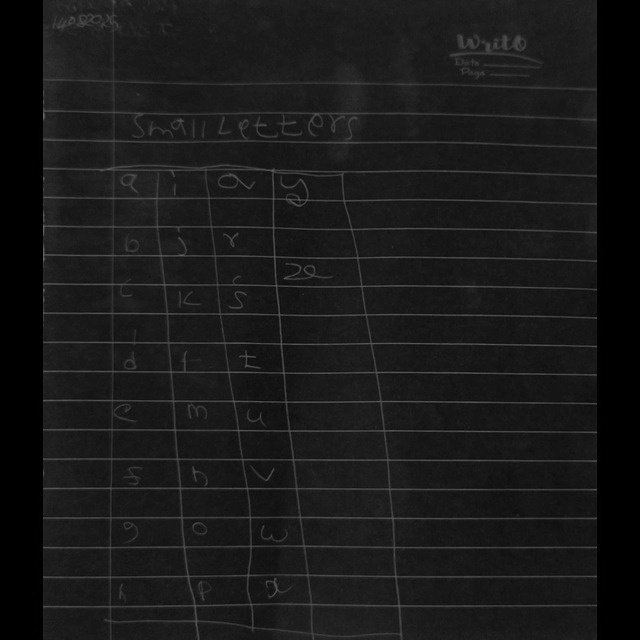 Write
Date
Page
Small Letters
a i q y
b j r
z
c k s
d l t
e m u
f n v
g o w
h p x